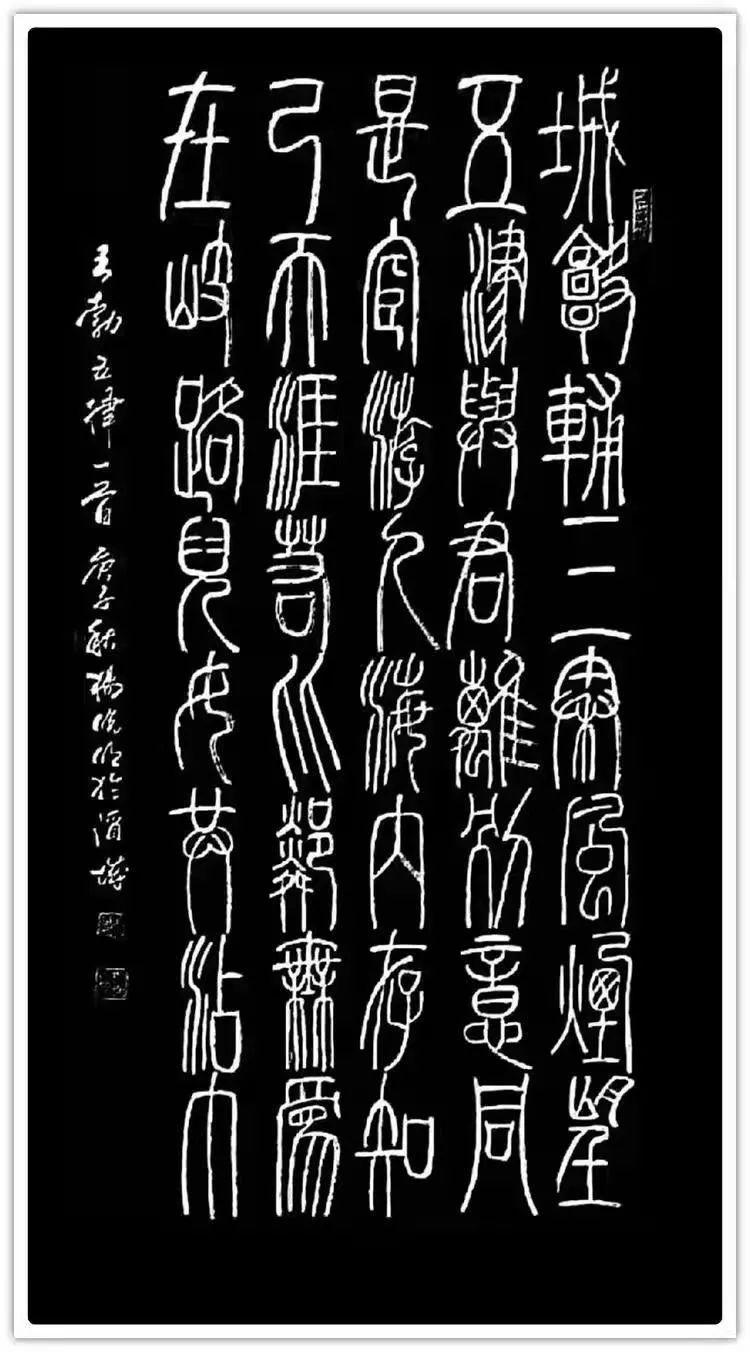 城闕輔三秦風煙望
五津與君離別意同
是宦游人海内存知
己天涯若比鄰無為
在岐路兒女共沾巾
王勃五律一首 庚子秋楊於渭城